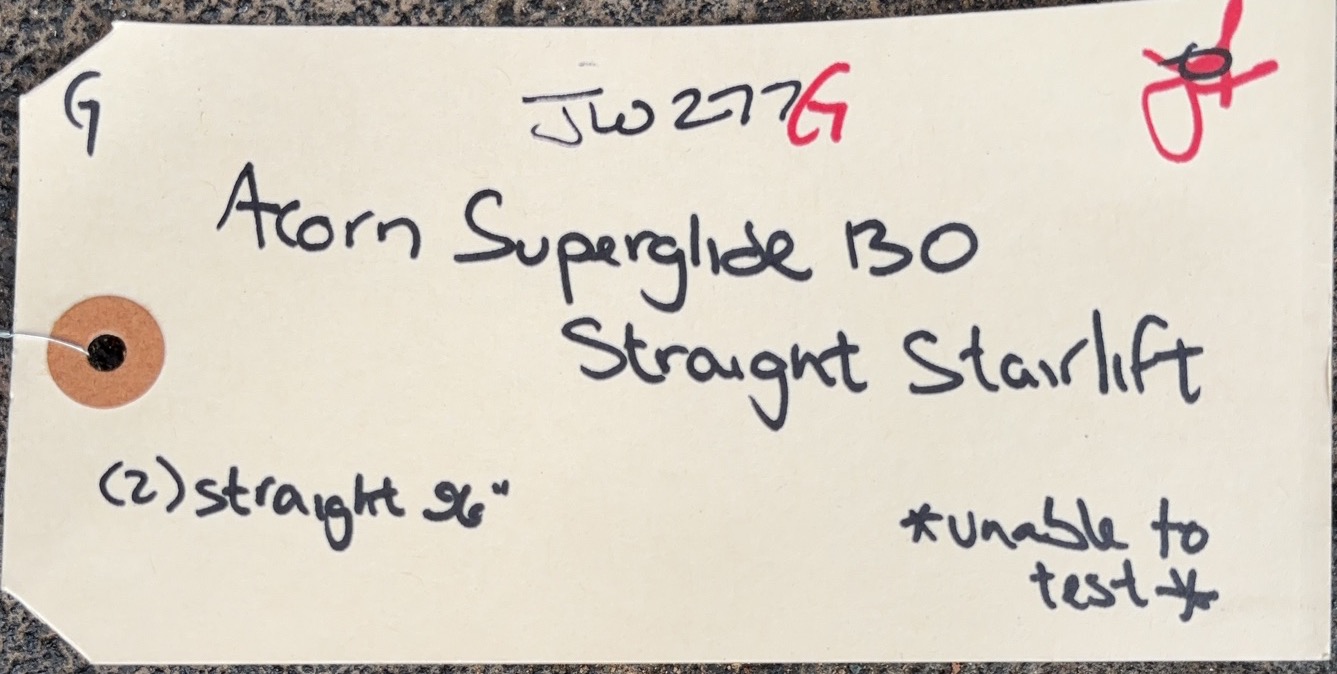 G
JW277G
Acorn Superglide 130
Straight Stairlift
(2) straight 96"
*unable to
test*